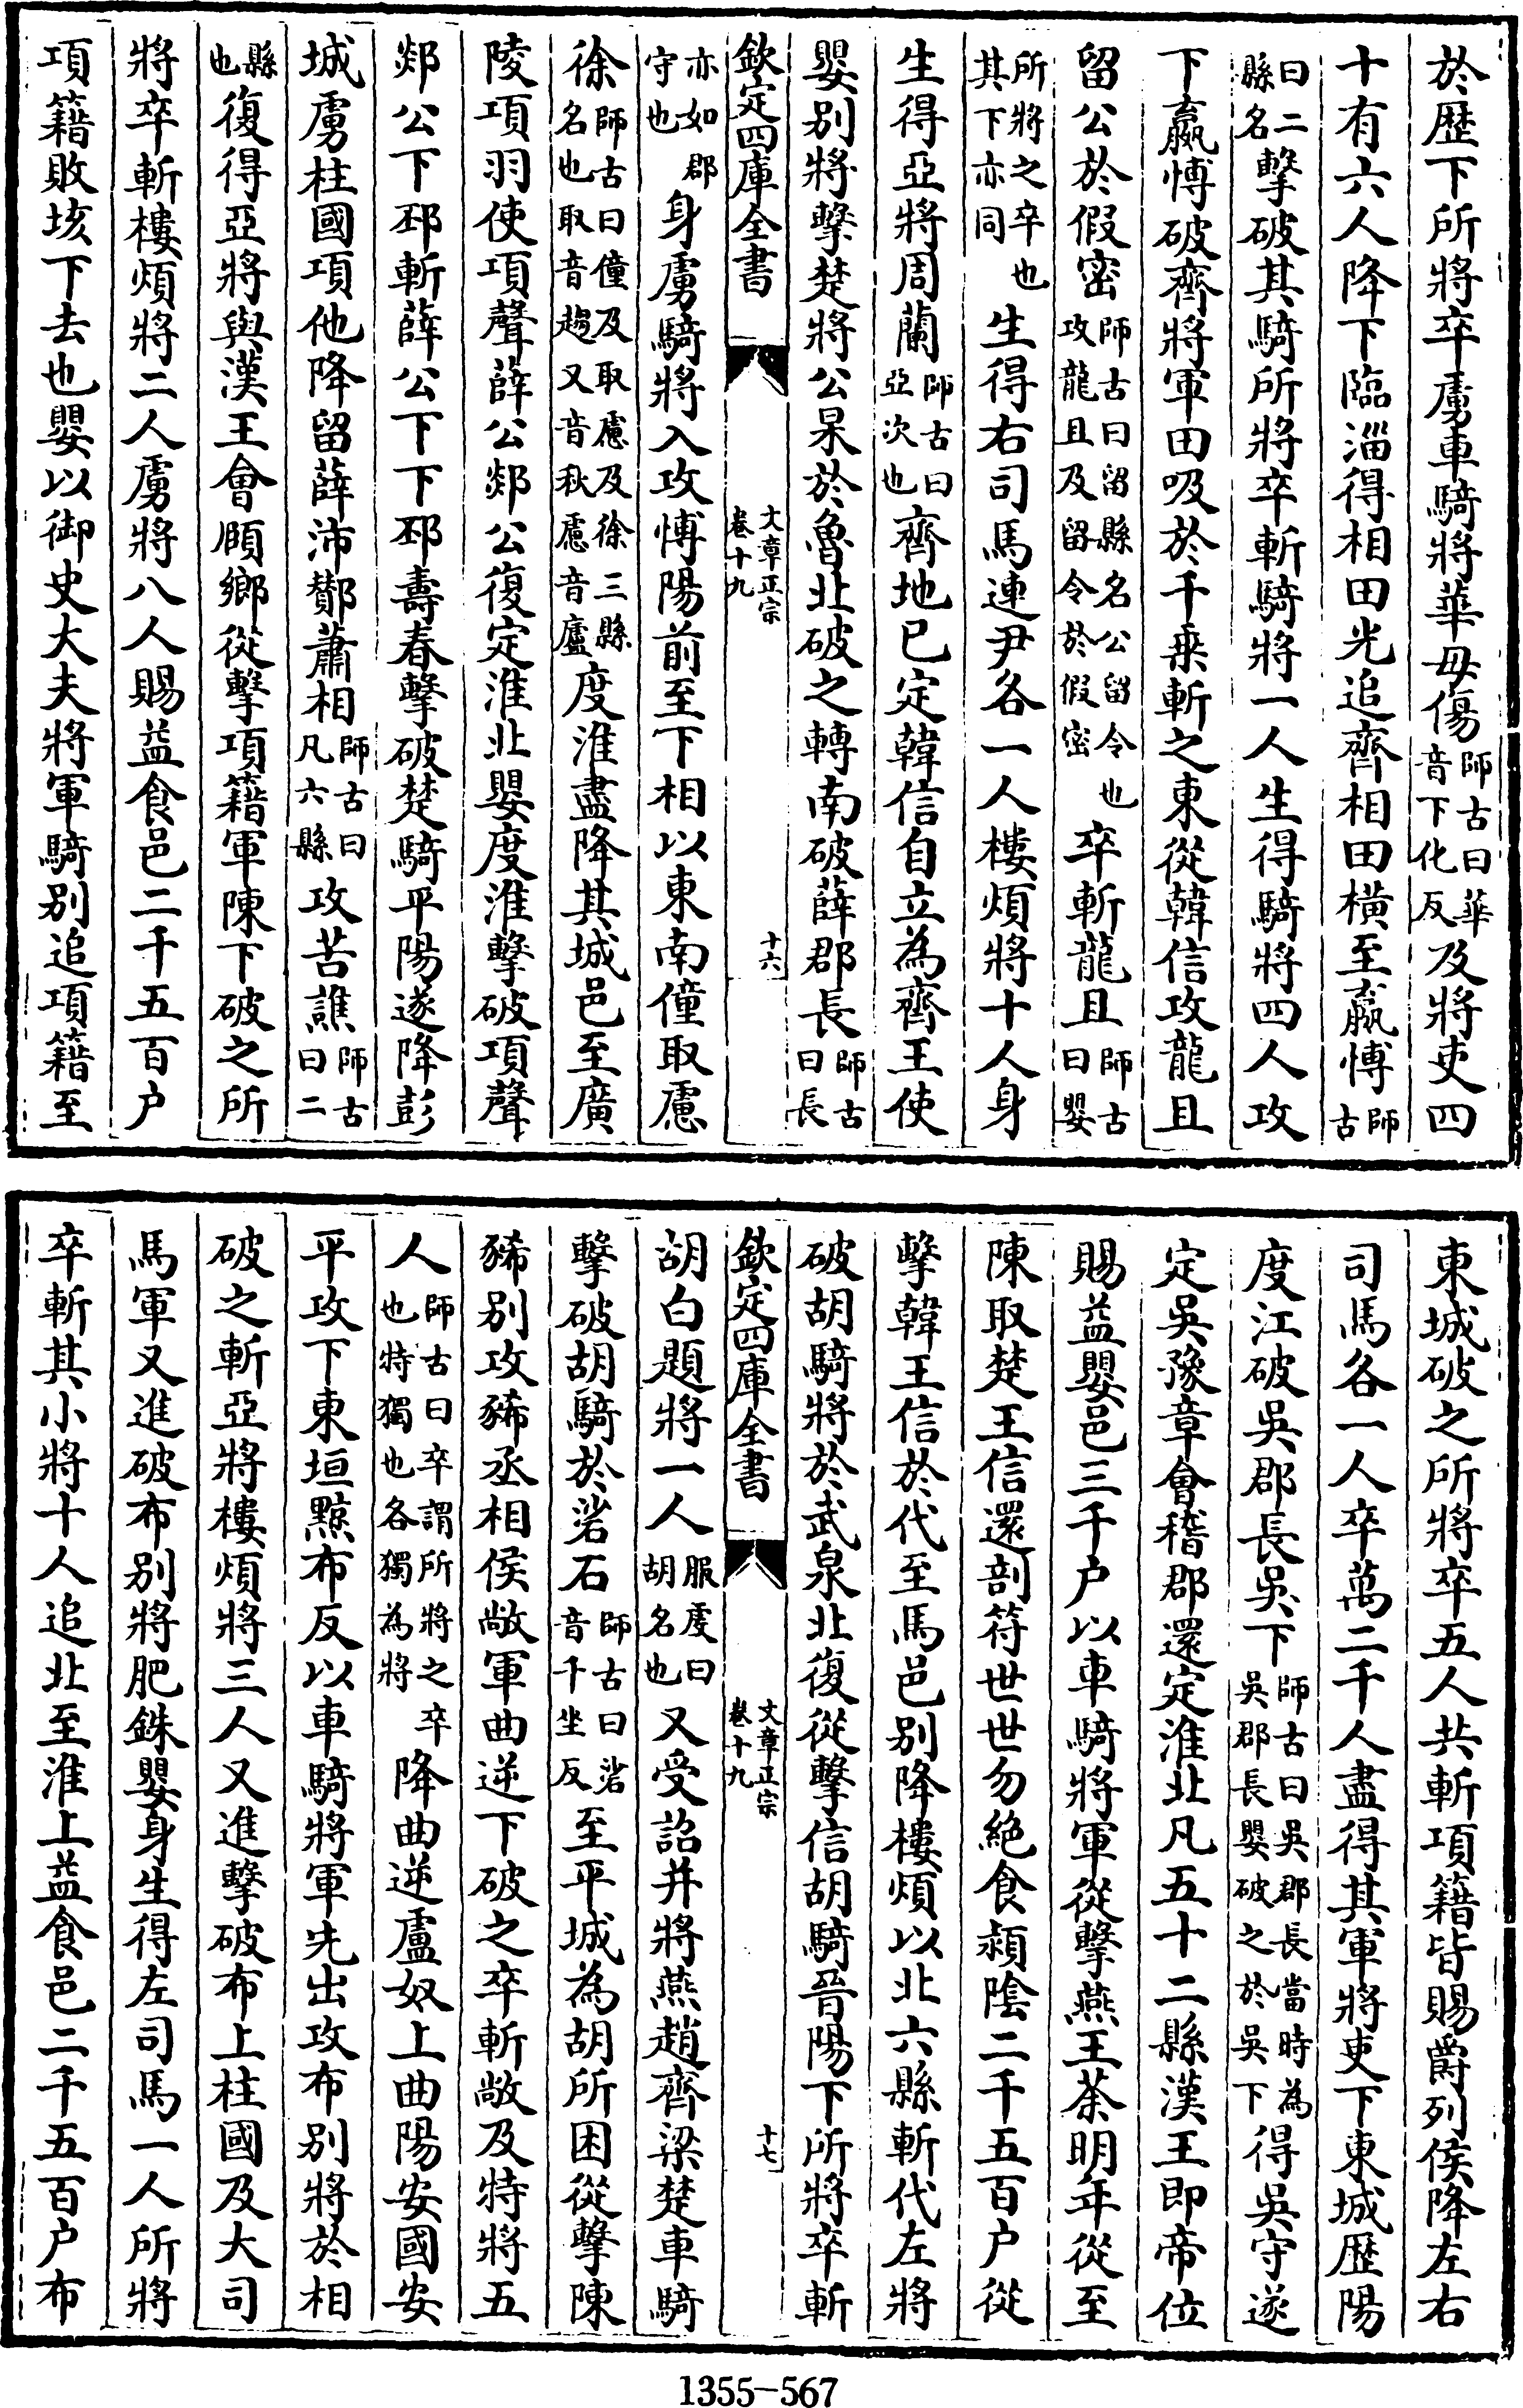 於歴下所將卒虜車騎將華毋傷師古曰華音下化反及將吏四
十有六人降下臨淄得相田光追齊相田横至嬴博師古
曰二縣名擊破其騎所將卒斬騎將一人生得騎將四人攻
下嬴博破齊將軍田吸於千乗斬之東從韓信攻龍且
留公於假宻師古曰留縣名公留令也攻龍且及留令於假宻卒斬龍且師古曰嬰
所將之卒也其下亦同生得右司馬連尹各一人樓煩將十人身
生得亞將周蘭師古曰亞次也齊地已定韓信自立為齊王使
嬰别將擊楚將公杲於魯北破之轉南破薛郡長師古曰長
欽定四庫全書
文章正宗卷十九
十六
亦如郡守也身虜騎將入攻博陽前至下相以東南僮取慮
徐師古曰僮及取慮及徐三縣名也取音趨又音秋慮音廬度淮盡降其城邑至廣
陵項羽使項聲薛公郯公復定淮北嬰度淮擊破項聲
郯公下邳斬薛公下下邳壽春擊破楚騎平陽遂降彭
城虜柱國項他降留薛沛酇蕭相師古曰凡六縣攻苦譙師古曰二
縣也復得亞將與漢王會頤鄉從擊項籍軍陳下破之所
將卒斬樓煩將二人虜將八人賜益食邑二千五百户
項籍敗垓下去也嬰以御史大夫將軍騎别追項籍至
東城破之所將卒五人共斬項籍皆賜爵列侯降左右
司馬各一人卒萬二千人盡得其軍將吏下東城歴陽
度江破吳郡長吳下師古曰吳郡長當時為吳郡長嬰破之於吳下得吳守遂
定吳豫章會稽郡還定淮北凡五十二縣漢王即帝位
賜益嬰邑三千户以車騎將軍從擊燕王荼明年從至
陳取楚王信還剖符世世勿絶食潁陰二千五百户從
擊韓王信於代至馬邑别降樓煩以北六縣斬代左將
破胡騎將於武泉北復從擊信胡騎晉陽下所將卒斬
欽定四庫全書
文章正宗卷十九
十七
胡白題將一人服虔曰胡名也又受詔并將燕趙齊梁楚車騎
擊破胡騎於硰石師古曰硰音千坐反至平城為胡所困從擊陳
豨别攻豨丞相侯敞軍曲逆下破之卒斬敞及特將五
人師古曰卒謂所將之卒也特獨也各獨為將降曲逆盧奴上曲陽安國安
平攻下東垣黥布反以車騎將軍先出攻布别將於相
破之斬亞將樓煩將三人又進擊破布上柱國及大司
馬軍又進破布别將肥銖嬰身生得左司馬一人所將
卒斬其小將十人追北至淮上益食邑二千五百户布
1355-567